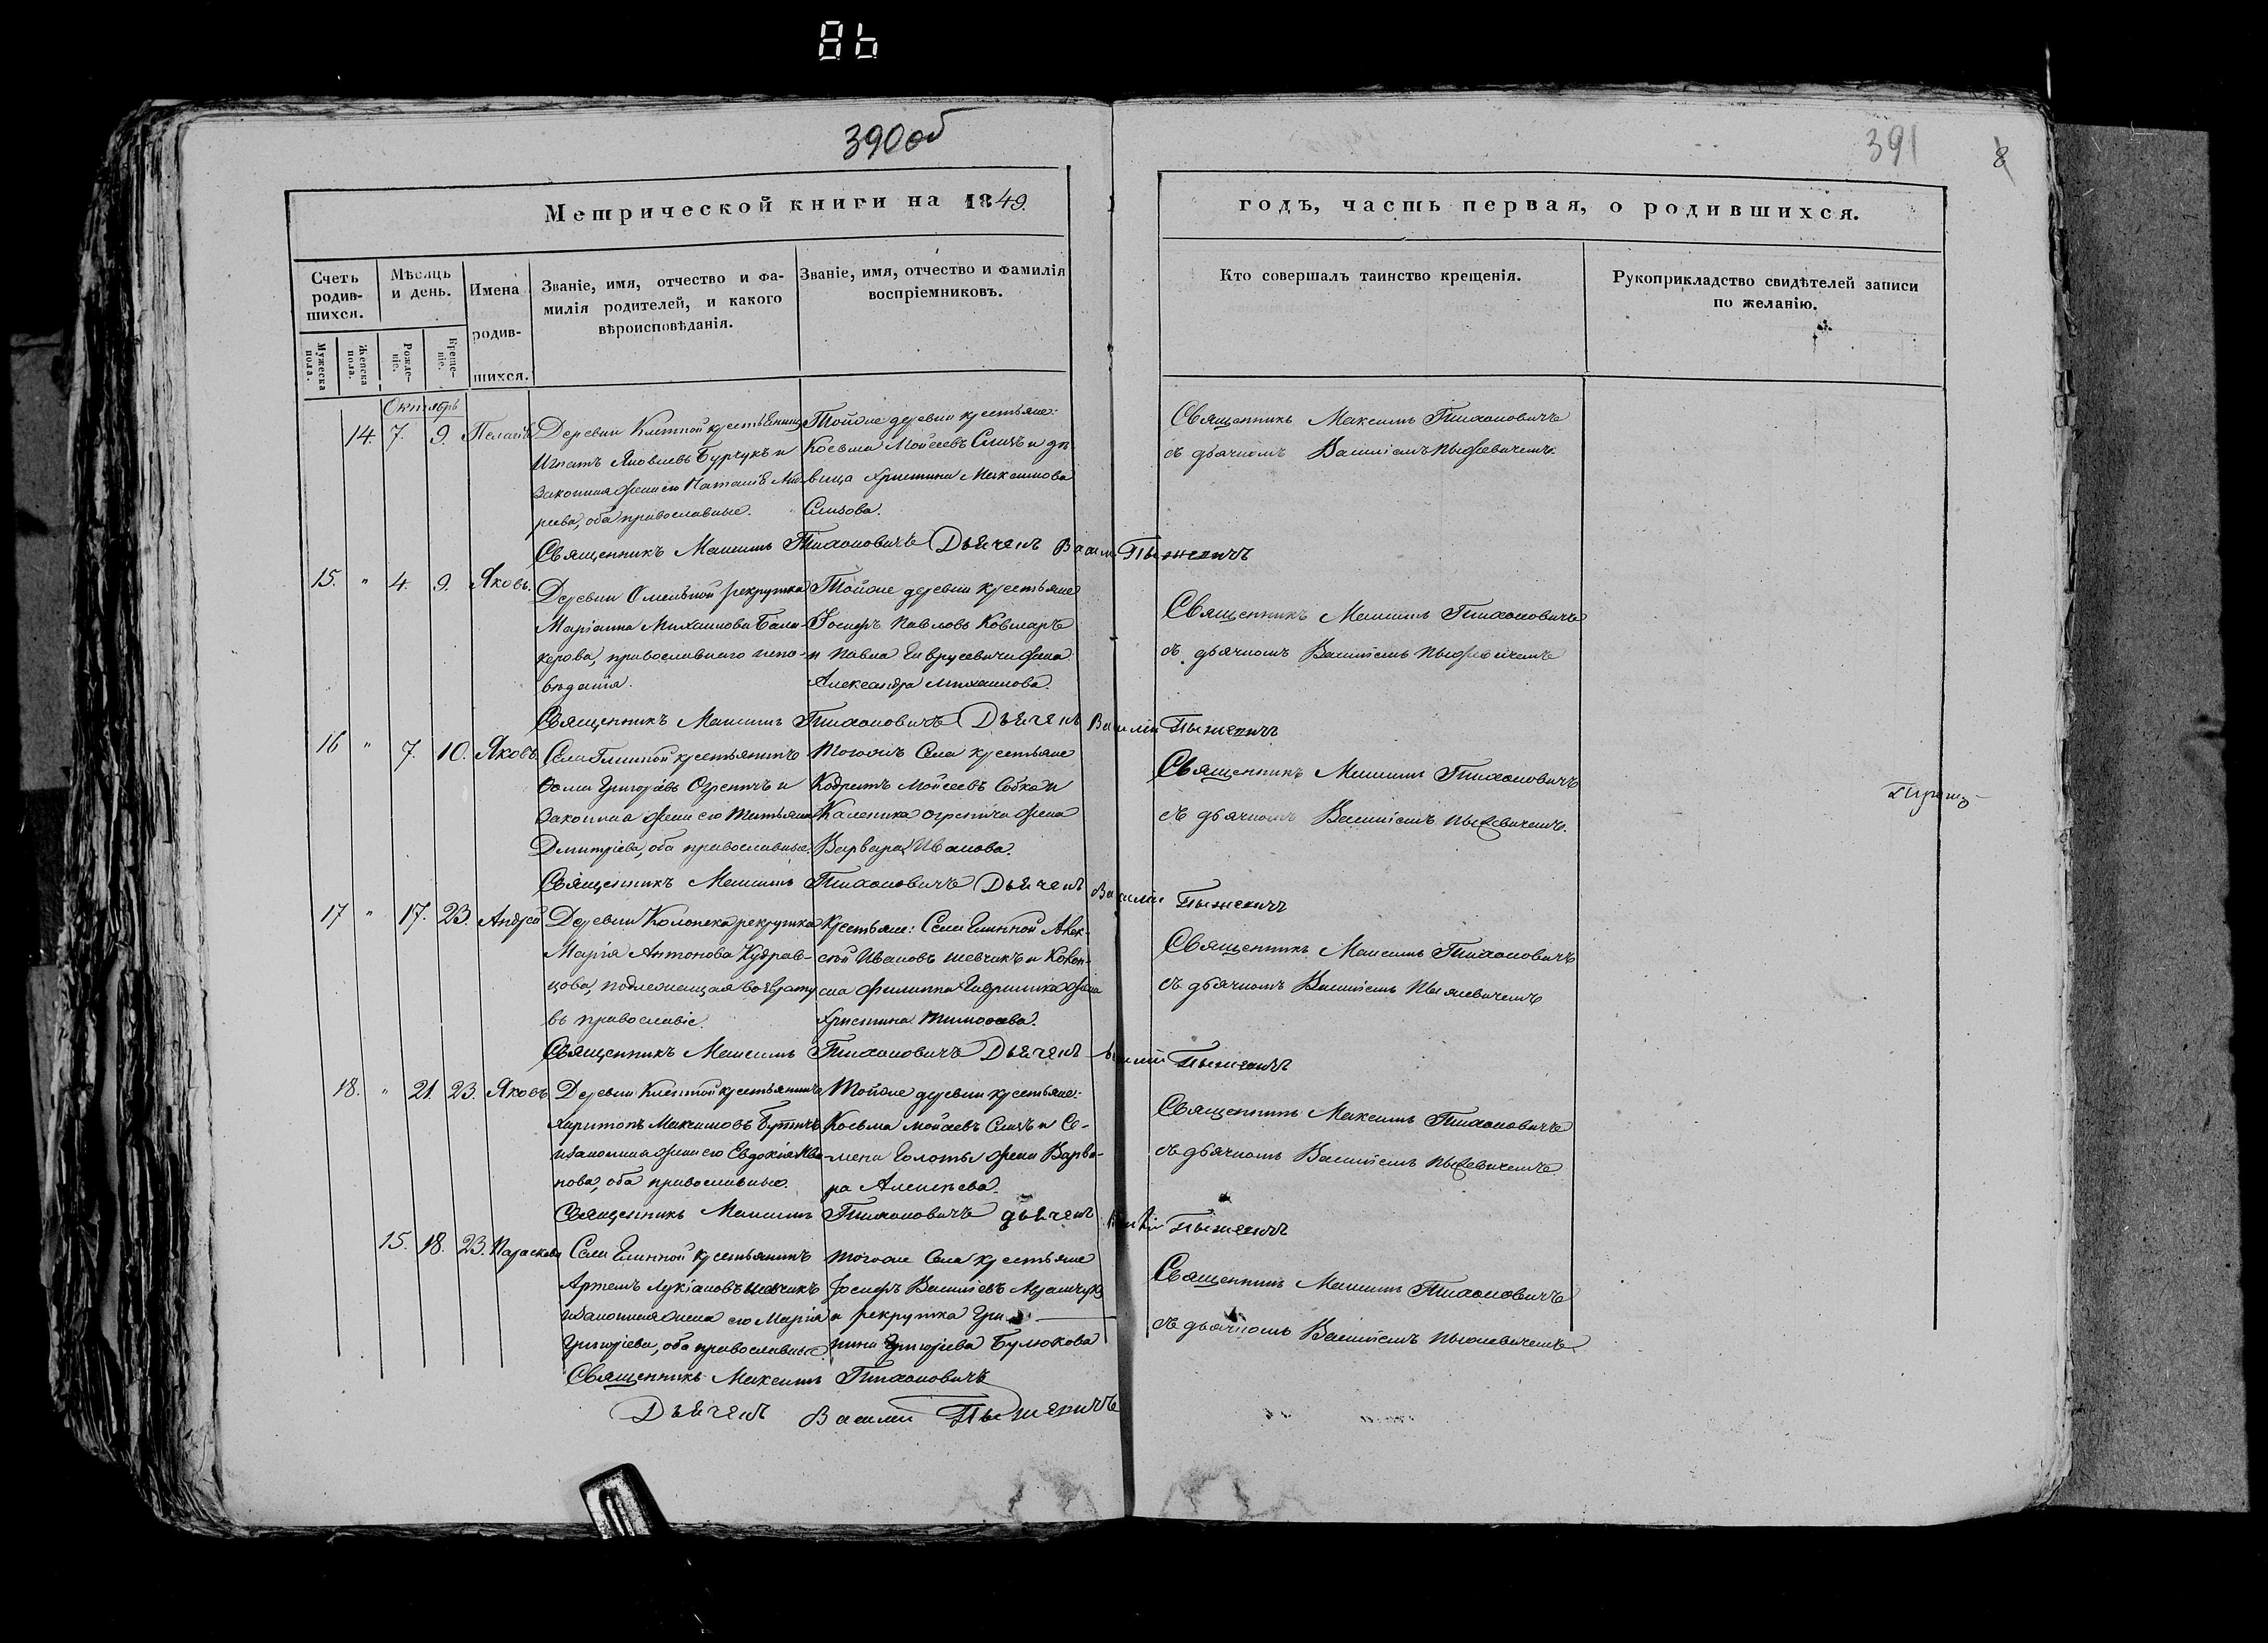 8b
390об
391
8
Метрической книги на 1849.
годъ, часть первая, о родившихся.
Счетъ родив-шихся.
Мѣсяцъ и день.
Имена родив-шихся.
Званіе, имя, отчество и фа-
милія родителей, и какого
вѣроисповѣданія.
Званіе, имя, отчество и фамилія
воспріемниковъ.
Кто совершалъ таинство крещенія.
Рукоприкладство свидѣтелей записи
по желанію.
Мужеска пола.
Женска пола.
Рожде-ніе.
Креще-ніе.
Октябрь
14. 7. 9. Пелагія
Деревни Клетной крестьянинъ
Игнатъ Яковлевъ Бурчукъ и
законная жена его Наталія Анд-
реева, оба православные.
Тойже деревни крестьяне:
Косьма Моисеевъ Слизъ и дѣ-
вица Христина Максимова
Слизова.
Священникъ Максимъ Тихоновичъ
съ дьячкомъ Василіемъ Пыжевичемъ.
Священникъ Максимъ Тихоновичъ Дьячекъ Васил. Пыжевичъ
15. " 4. 9. Яковъ.
Деревни Омельной рекрутка
Маріанна Михаилова Бала-
керова, православнаго испо-
вѣданія.
Тойже деревни крестьяне
Іосифъ Павловъ Ковмаръ
и Павла Гаврусевича жена
Александра Михаилова.
Священникъ Максимъ Тихоновичъ
съ дьячкомъ Василіемъ Пыжевичемъ
Священникъ Максимъ Тихоновичъ Дьячекъ Василій Пыжевичъ
16 " 7. 10. Яковъ
Села Глинной крестьянинъ
Ѳома Григорьевъ Огреничъ и
законная жена его Татьяна
Дмитріева, оба православные.
Тогожъ Села крестьяне
Кодратъ Моисеевъ Собка и
Каленика Огренича жена
Варвара Иванова.
Священникъ Максимъ Тихоновичъ
съ дьячкомъ Василіемъ Пыжевичемъ.
Священникъ Максимъ Тихоновичъ Дьячекъ Василій Пыжевичъ
17 " 17. 23. Андрей
Деревни Колонска рекрутка
Марія Антонова Кудрав-
цова, подлежащая возврату
въ православіе.
Крестьяне: Села Глинной Алек-
сѣй Ивановъ Шевчикъ и Колон-
ска Филиппа Гавриlика жена
Христина Тимоѳеева.
Священникъ Максимъ Тихоновичъ
съ дьячкомъ Василіемъ Пыжевичемъ
Священникъ Максимъ Тихоновичъ Дьячекъ Василій Пыжевичъ
18. " 21. 23. Яковъ
Деревни Клетной крестьянинъ
Харитонъ Максимовъ
и законная жена его Евдокія Ива-
нова, оба православные.
Тойже деревни крестьяне:
Косьма Моисеевъ Слизъ и Се-
мена Голоты жена Варва-
ра Алексѣева.
Священникъ Максимъ Тихоновичъ
съ дьячкомъ Василіемъ Пыжевичемъ.
Священникъ Максимъ Тихоновичъ дьячекъ Василій Пыжевичъ
15. 18. 23. Параскева
Села Глинной крестьянинъ
Артемъ Лукіановъ Шевчикъ
и законная жена его Марія
Григорьева, оба православные.
Тогоже Села крестьяне
Іосифъ Василіевъ
и рекрутка
Григорьева Булюкова
Священникъ Максимъ Тихоновичъ
съ дьячкомъ Василіемъ Пыжевичемъ.
Священникъ Максимъ Тихоновичъ
Дьячекъ Василій Пыжевичъ